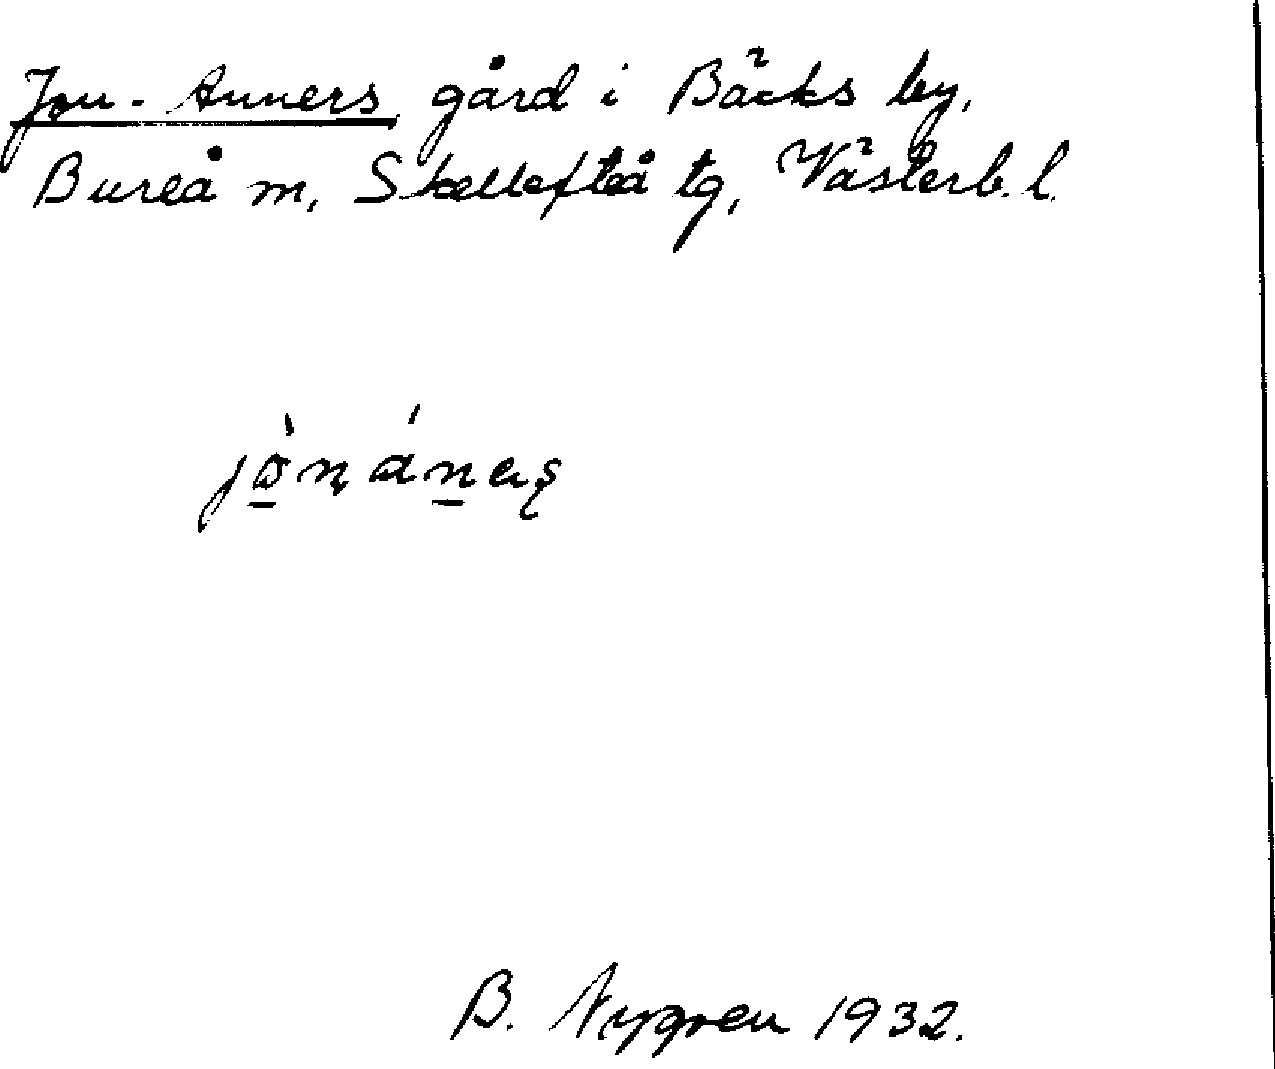 Jon-Anners gård i Bäcks by,
Bureå m, Skellefteå tg, Västerb. l.
B. Nygren 1932.